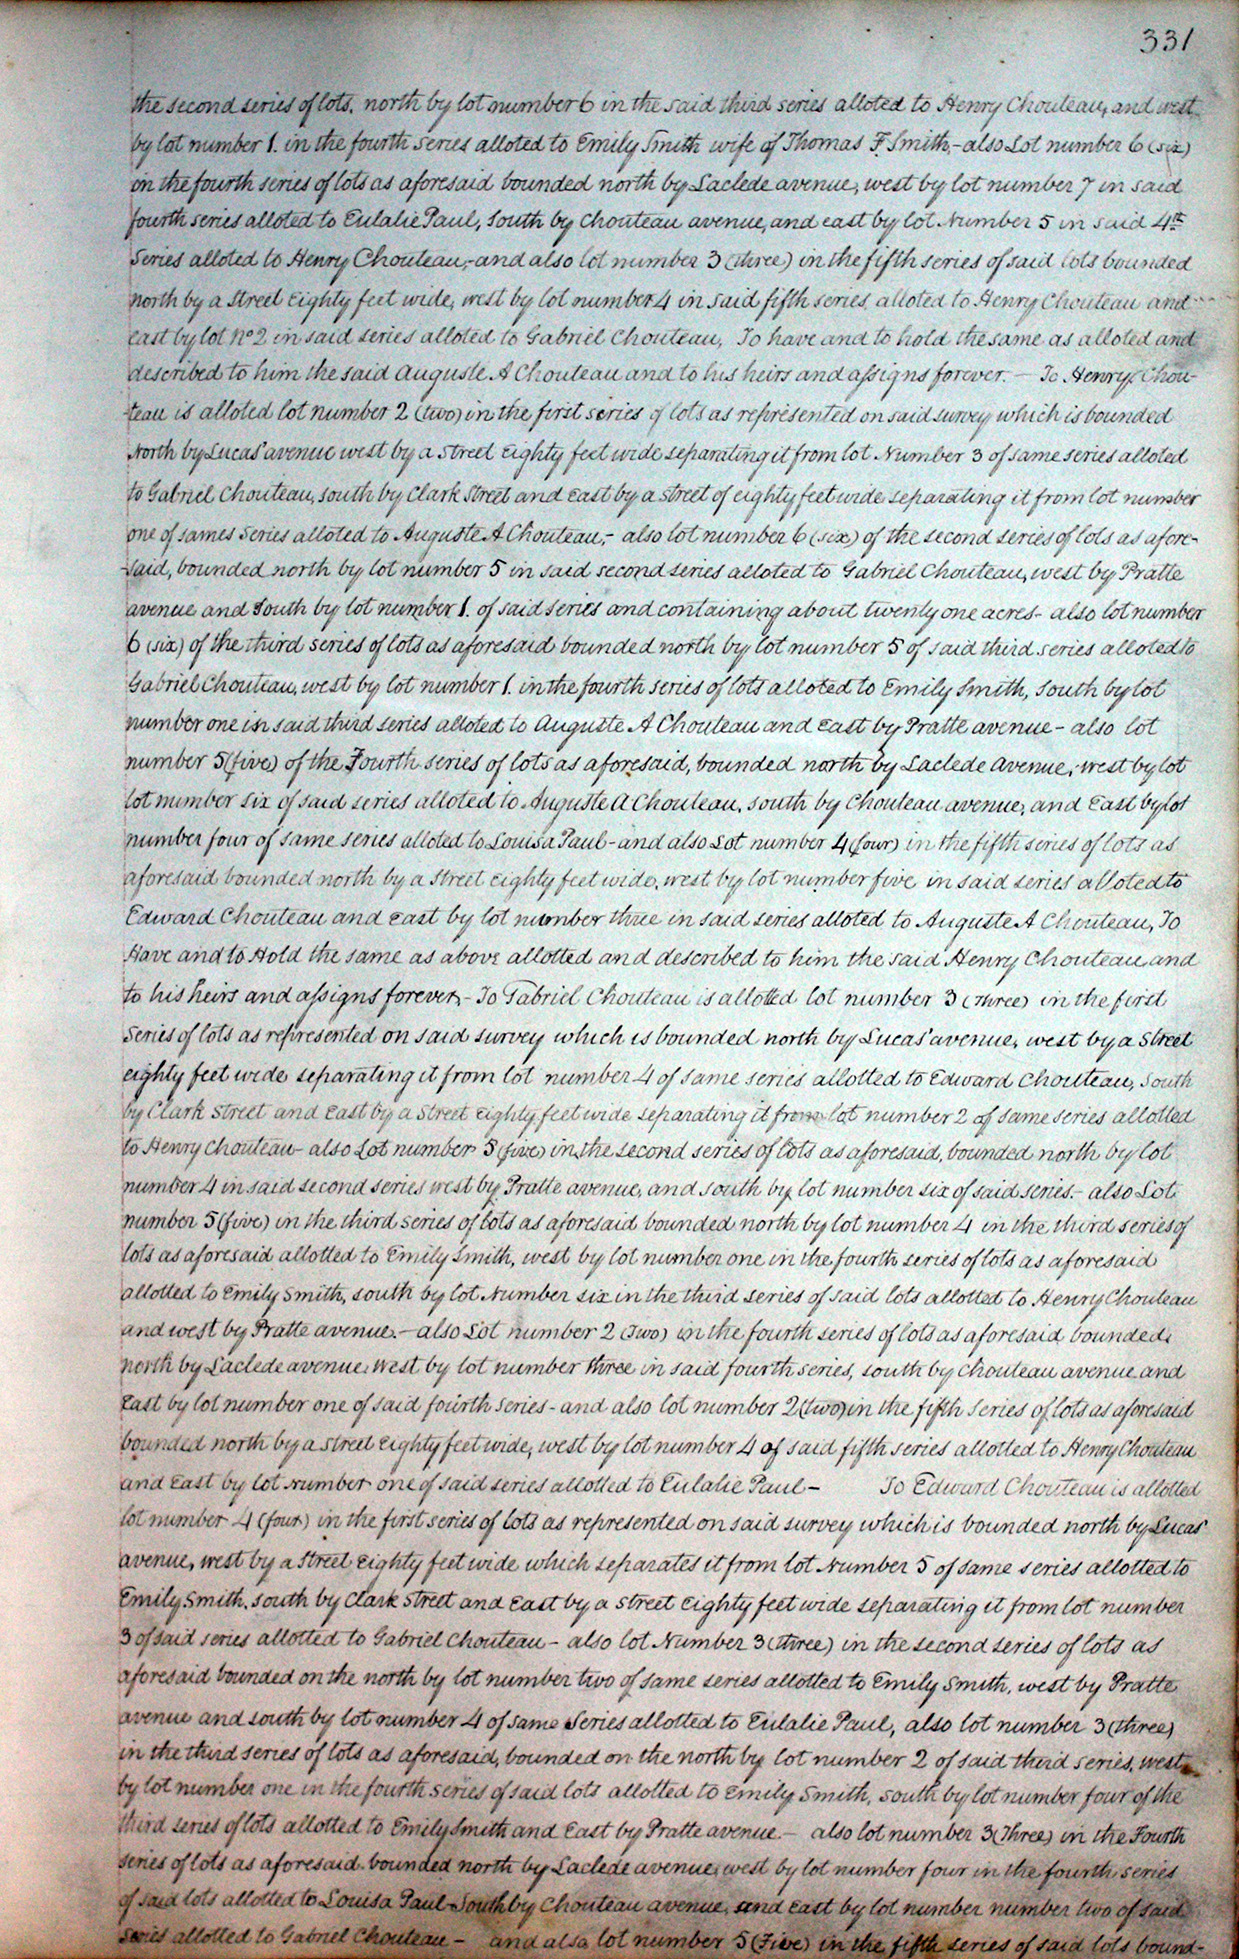 331
the second series of lots. north by lot number 6 in the said third series alloted to Henry Chouteau, and west
by lot number 1. in the fourth series alloted to Emily Smith wife of Thomas F. Smith, - also Lot number 6 (six)
in the fourth series of lots as aforesaid bounded north by Laclede avenue, west by lot number 7 in said
fourth series alloted to Eulalie Paul, South by Chouteau avenue, and east by lot Number 5 in said 4th
Series alloted to Henry Chouteau, - and also lot number 3 (three) in the fifth series of said lots bounded
north by a street Eighty feet wide, west by lot number 4 in said fifth series, alloted to Henry Chouteau and
east by lot No 2 in said series alloted to Gabriel Chouteau, To have and to hold the same as alloted and
described to him the said Auguste A Chouteau and to his heirs and assigns forever. — To Henry Chou-
-teau is alloted lot number 2 (two) in the first series of lots as represented on said survey which is bounded
North by Lucas' avenue west by a street Eighty feet wide separating it from lot Number 3 of same series alloted
to Gabriel Chouteau, south by Clark Street and East by a street of eighty feet wide separating it from lot number
one of sames series alloted to Auguste A Chouteau, - also lot number 6 (six) of the second series of lots as afore-
-said, bounded north by lot number 5 in said second series alloted to Gabriel Chouteau, west by Pratte
avenue and South by lot number 1. of said series and containing about twenty one acres - also lot number
6 (six) of the third series of lots as aforesaid bounded north by lot number 5 of said third series alloted to
Gabriel Chouteau, west by lot number 1. in the fourth series of lots alloted to Emily Smith, South by lot
number one in said third series alloted to Auguste A Chouteau and East by Pratte avenue - also lot
number 5 (five) of the Fourth series of lots as aforesaid, bounded north by Laclede Avenue, west by lot
lot number six of said series alloted to Auguste A Chouteau, south by Chouteau avenue, and East by lot
number four of same series alloted to Louisa Paul - and also Lot number 4 (four) in the fifth series of lots as
aforesaid bounded north by a street eighty feet wide, west by lot number five in said series alloted to
Edward Chouteau and East by lot number three in said series alloted to Auguste A Chouteau, To
Have and to Hold the same as above allotted and described to him the said Henry Chouteau and
to his heirs and assigns forever, - To Gabriel Chouteau is allotted lot number 3 (Three) in the first
Series of lots as represented on said survey which is bounded north by Lucas' avenue, west by a Street
eighty feet wide separating it from lot number 4 of same series allotted to Edward Chouteau, South
by Clark Street and East by a Street Eighty feet wide separating it from lot number 2 of same series allotted
to Henry Chouteau - also Lot number 5 (five) in the second series of lots as aforesaid, bounded north by lot
number 4 in said second series west by Pratte avenue, and south by lot number six of said series. - also Lot
number 5 (five) in the third series of lots as aforesaid bounded north by lot number 4 in the third series of
lots as aforesaid allotted to Emily Smith, west by lot number one in the fourth series of lots as aforesaid
allotted to Emily Smith, south by lot Number six in the third series of said lots allotted to Henry Chouteau
and west by Pratte avenue. - also Lot number 2 (Two) in the fourth series of lots as aforesaid bounded
north by Laclede avenue, West by lot number three in said fourth series, south by Chouteau avenue and
East by lot number one of said fourth series - and also lot number 2 (two) in the fifth series of lots as aforesaid
bounded north by a street Eighty feet wide, west by lot number 4 of said fifth series allotted to Henry Chouteau
and East by lot number one of said series allotted to Eulalie Paul - To Edward Chouteau is allotted
lot number 4 (four) in the first series of lots as represented on said survey which is bounded north by Lucas'
avenue, west by a Street Eighty feet wide which separates it from lot Number 5 of same series allotted to
Emily Smith, south by Clark Street and East by a street Eighty feet wide separating it from lot number
3 of said series allotted to Gabriel Chouteau - also lot Number 3 (three) in the second series of lots as
aforesaid bounded on the north by lot number two of same series allotted to Emily Smith, west by Pratte
avenue and south by lot number 4 of same Series allotted to Eulalie Paul, also lot number 3 (three)
in the third series of lots as aforesaid, bounded on the north by lot number 2 of said third series, west
by lot number one in the fourth series of said lots allotted to Emily Smith, south by lot number four of the
third series of lots allotted to Emily Smith and East by Pratte avenue. - also lot number 3 (Three) in the Fourth
series of lots as aforesaid bounded north by Laclede avenue, west by lot number four in the fourth series
of said lots allotted to Louisa Paul South by Chouteau avenue, and East by lot number number two of said
series allotted to Gabriel Chouteau - and also lot number 5 (Five) in the fifth series of said lots bound-